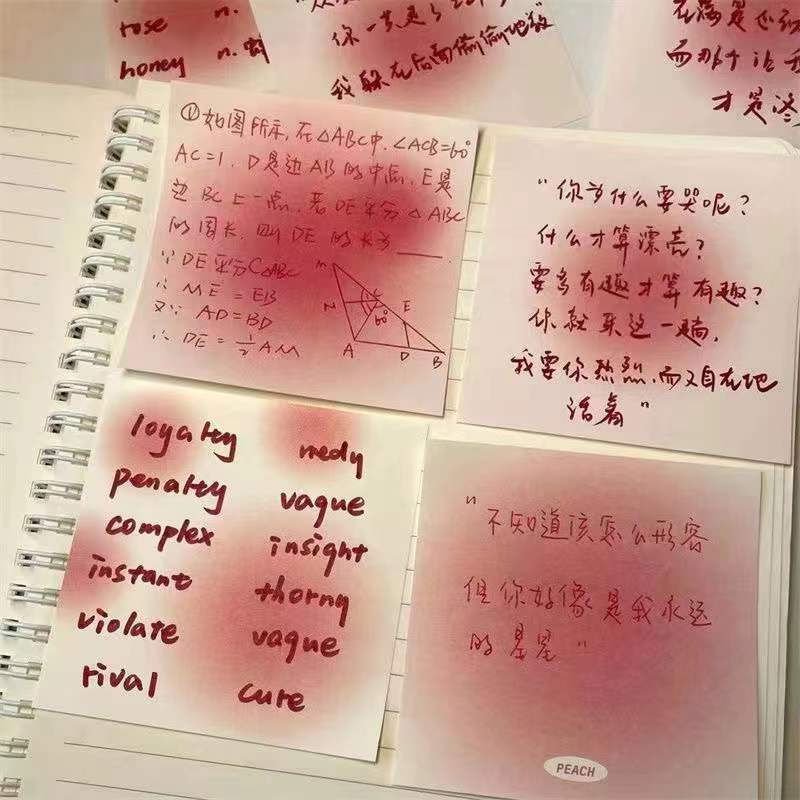 rose n.
honey n.
你一共更
我躲在后面偷偷地放
在满是
而那个让我
才是
①如图所示,在△ABC中,∠ACB=60°
AC=1,D是边AB的中点,E是
边BC上一点,若DE平分△ABC
的周长,则DE的长为____.
∵DE平分C△ABC
∴ME=EB
又∵AD=BD
∴DE=½AM
M
N
C
E
60°
A
D
B
“你为什么要哭呢?
什么才算漂亮?
要多有趣才算有趣?
你就来这一趟,
我要你热烈,而又自在地
活着”
loyalty
penalty
complex
instant
violate
rival
vague
insight
thorny
vague
cure
“不知道该怎么形容
但你好像是我永远
的星星”
PEACH